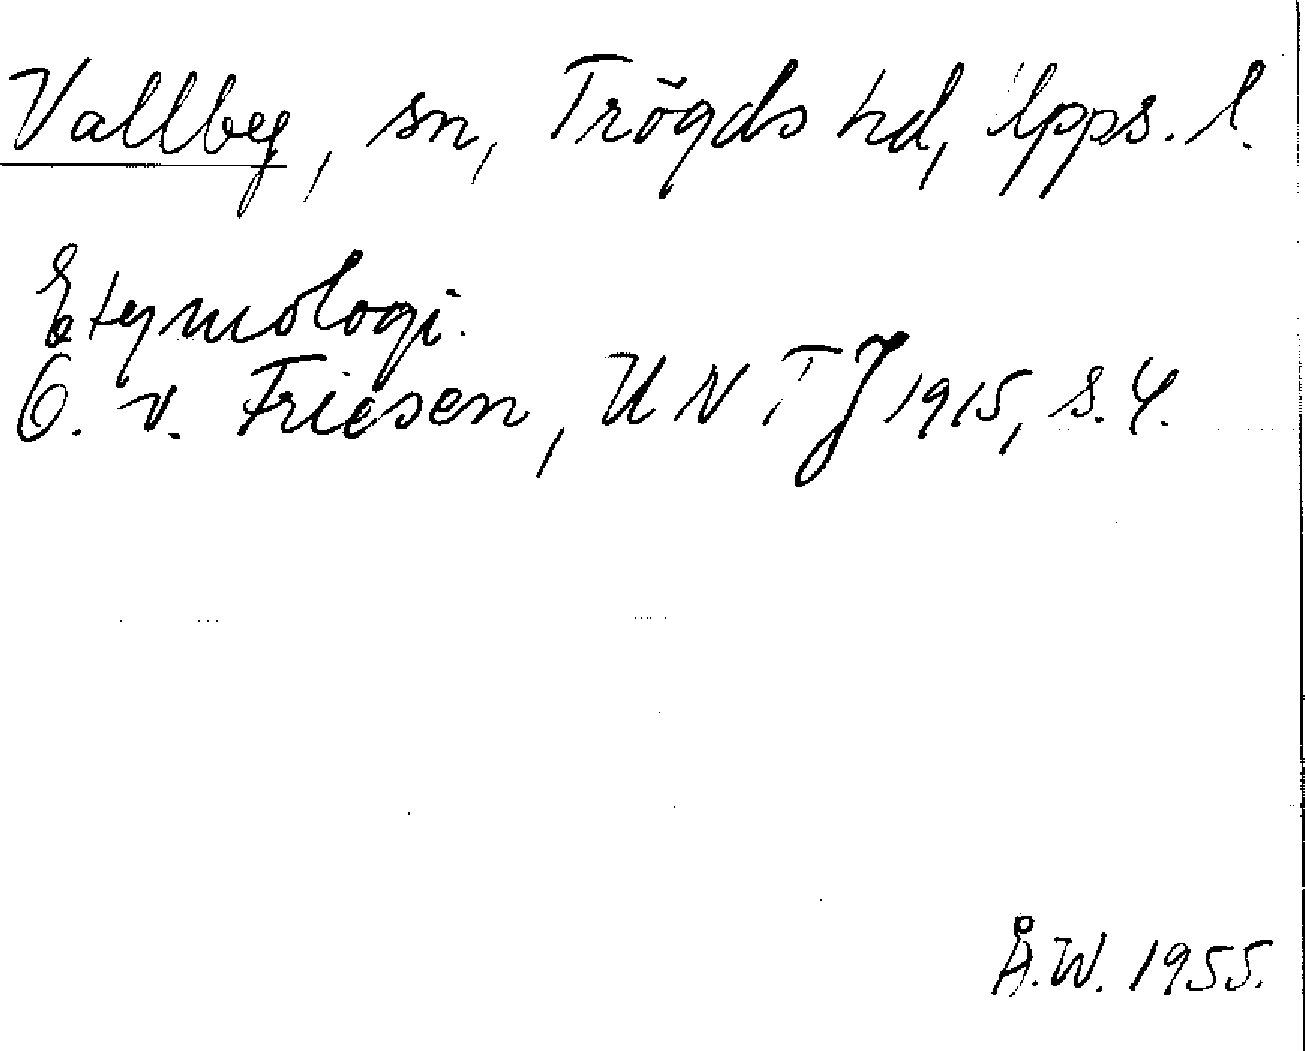 Vallby, sn, Trögds hd, Upps. l.
Etymologi.
O. v. Friesen, UNTJ 1915, s. 4.
Å.W. 1955.